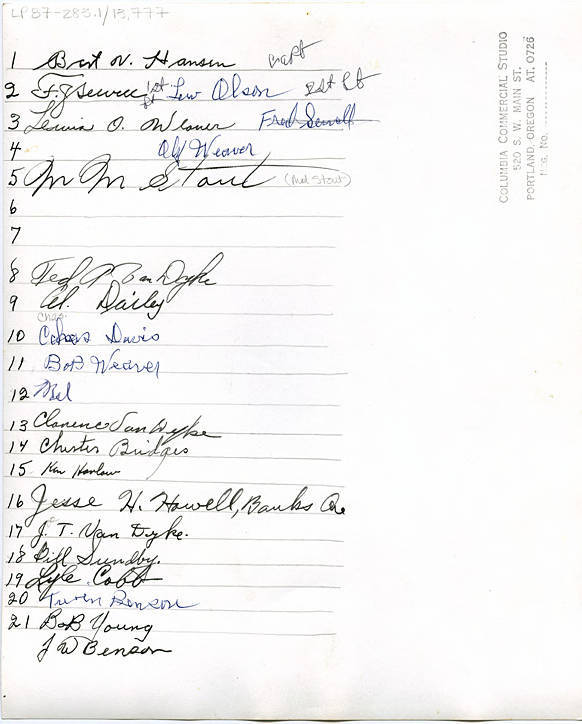 LP87-283.1/13,777
1 Bert V. Hansen Capt
2 F. J. Sewell 1st Lt Lew Olson 2st Lt
3 O. Weaver Fred Sewell
4 Old Weaver
5 M M Stout (Mel Stout)
6
7
8 Ted A Van Dyke
9 Al. Dailey
Chas.
10 Davis
11 Bob Weaver
12 Mel
13 Clarence Van Dyke
14 Chester Bridges
15 Ken Harlow
16 Jesse H. Howell, Banks Ore
17 J. T. Van Dyke.
18 Bill Sundby.
19 Lyle Cobb
20 Benson
21 Bob Young
J W Benson
COLUMBIA COMMERCIAL STUDIO
520 S. W. MAIN ST.
PORTLAND, OREGON AT. 0726
NEG. NO.